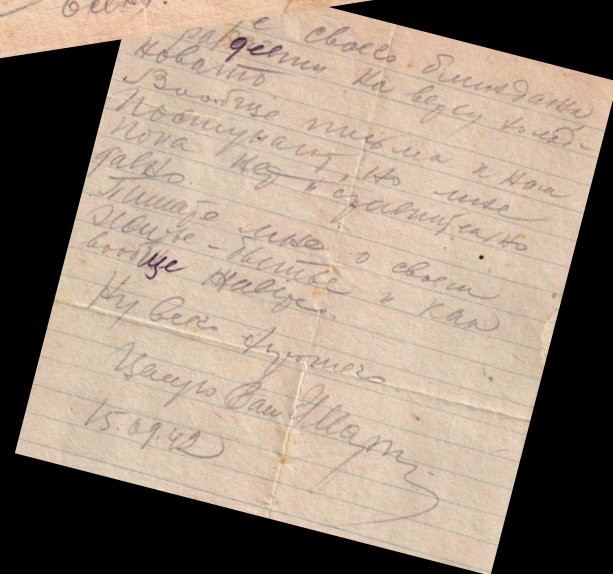 своего блиндажа,
дети на верху холод-
новато
Вообще письма к нам
поступают, но мне
пока нет и сравнительно
давно.
Пишите мне о своем
житье-бытье и как
вообще
Ну всего лучшего
Целую Вас
15.09.42